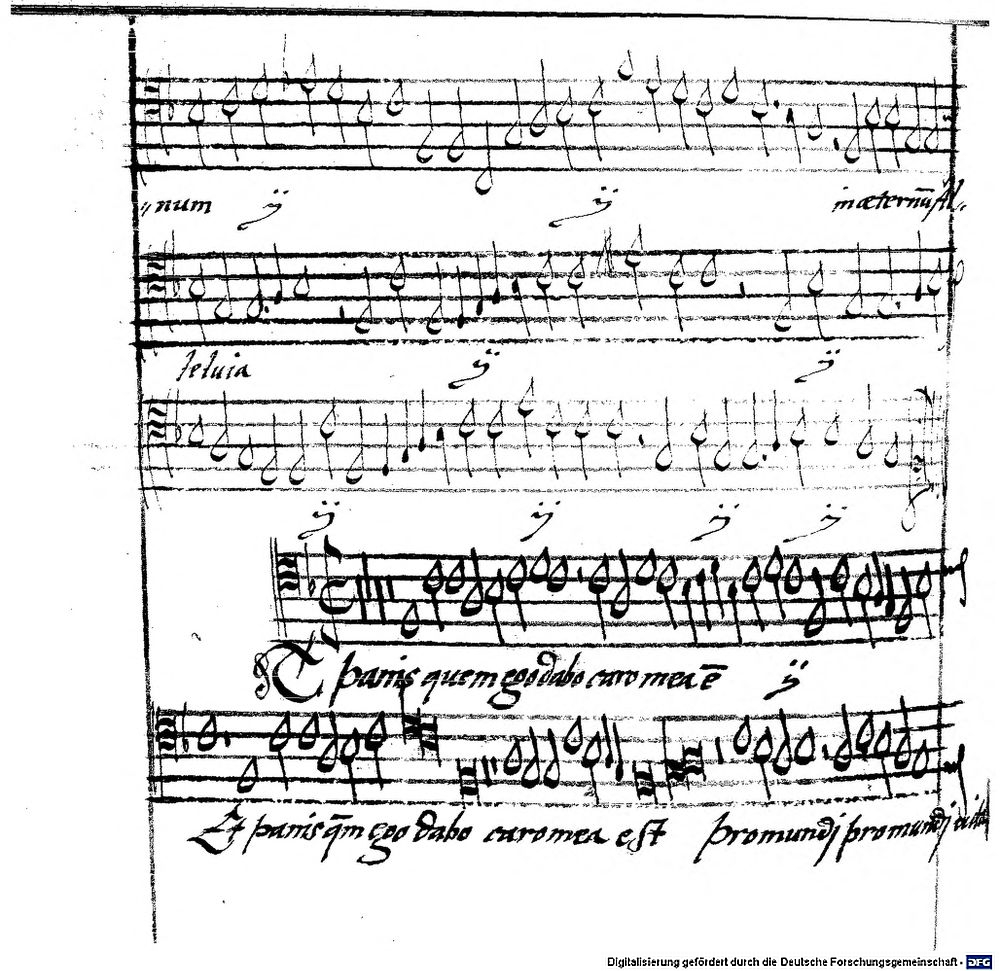 num ÿ ÿ in æternū Al-
leluia ÿ ÿ
ÿ ÿ ÿ ÿ
Et panis quem ego dabo caro mea ē ÿ
Et panis q̄m ego dabo caro mea est pro mundi pro mundi vita
Digitalisierung gefördert durch die Deutsche Forschungsgemeinschaft - DFG